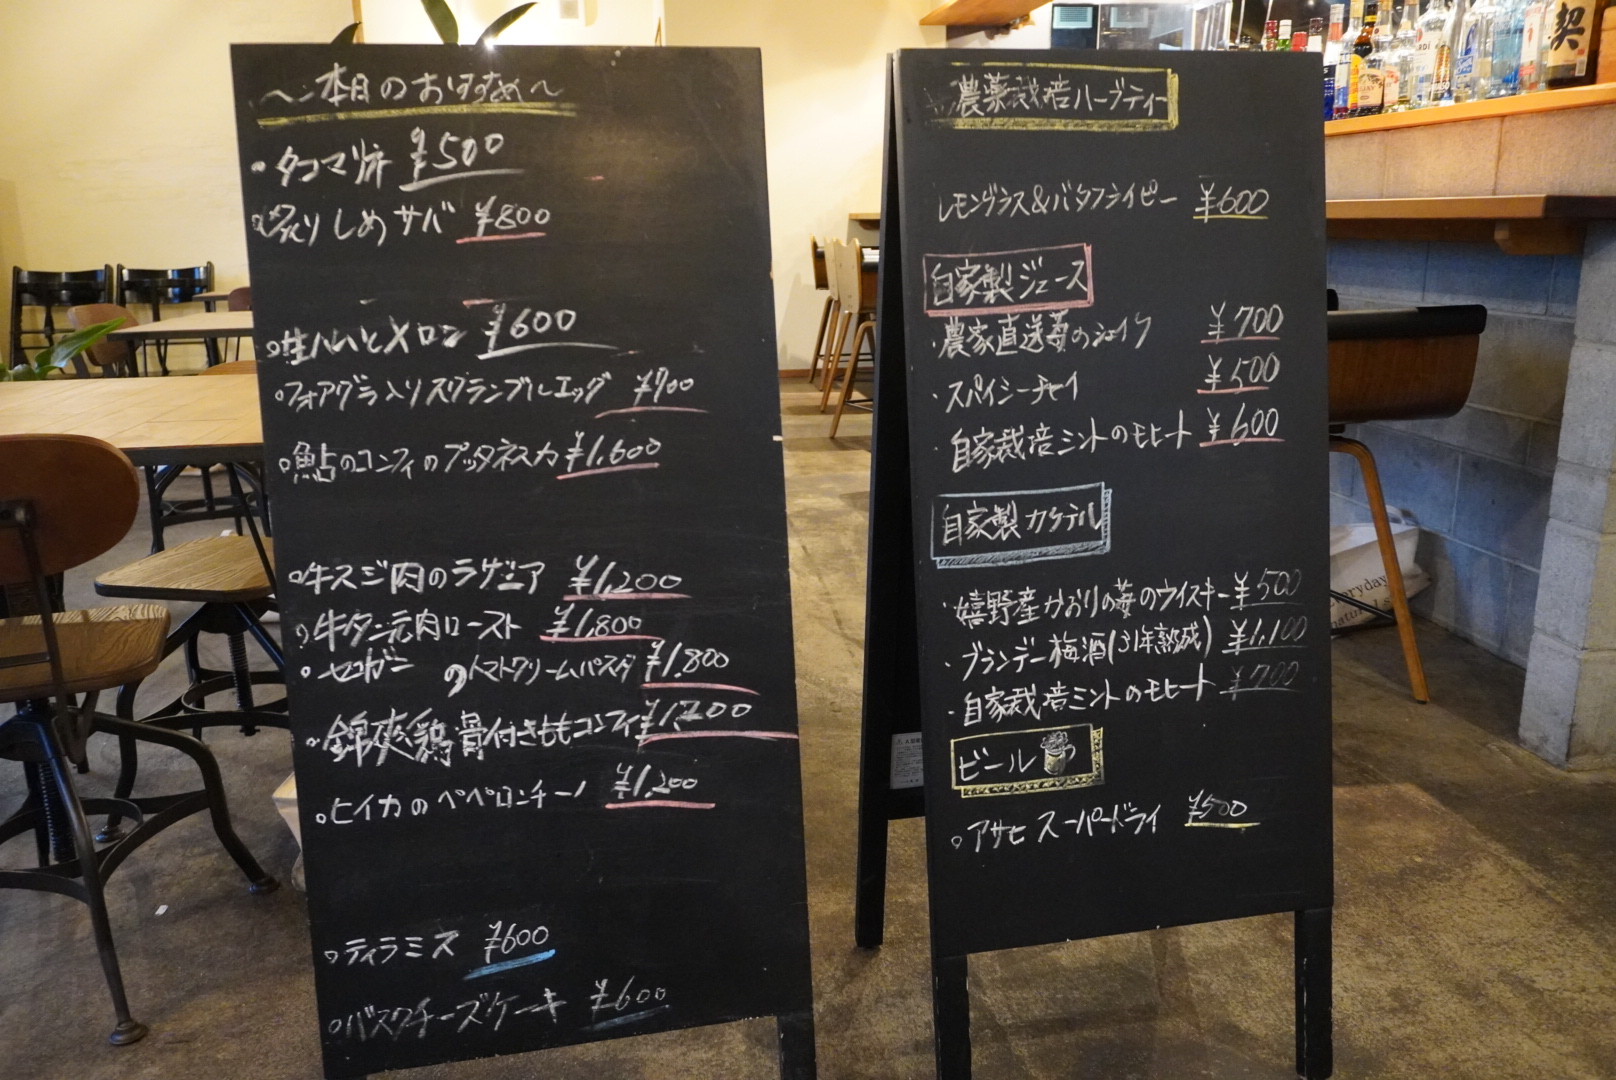 〜本日のおすすめ〜
・タコマリネ ¥500
・炙りしめサバ ¥800
・生ハムとメロン ¥600
・フォアグラ入りスクランブルエッグ ¥900
・鮎のコンフィのプッタネスカ ¥1,600
・牛スジ肉のラザニア ¥1,200
・牛タン元肉ロースト ¥1,800
・セコガニ のトマトクリームパスタ ¥1,800
・錦爽鶏骨付きももコンフィ ¥1,200
・ヒイカのペペロンチーノ ¥1,200
・ティラミス ¥600
・バスクチーズケーキ ¥600
農薬栽培ハーブティー
レモングラス&バタフライピー ¥600
自家製ジュース
・農家直送苺のシェイク ¥700
・スパイシーチャイ ¥500
・自家栽培ミントのモヒート ¥600
自家製カクテル
・嬉野産かおりの苺のウイスキー ¥500
・ブランデー梅酒(31年熟成) ¥1,100
・自家栽培ミントのモヒート ¥700
ビール
・アサヒスーパードライ ¥500